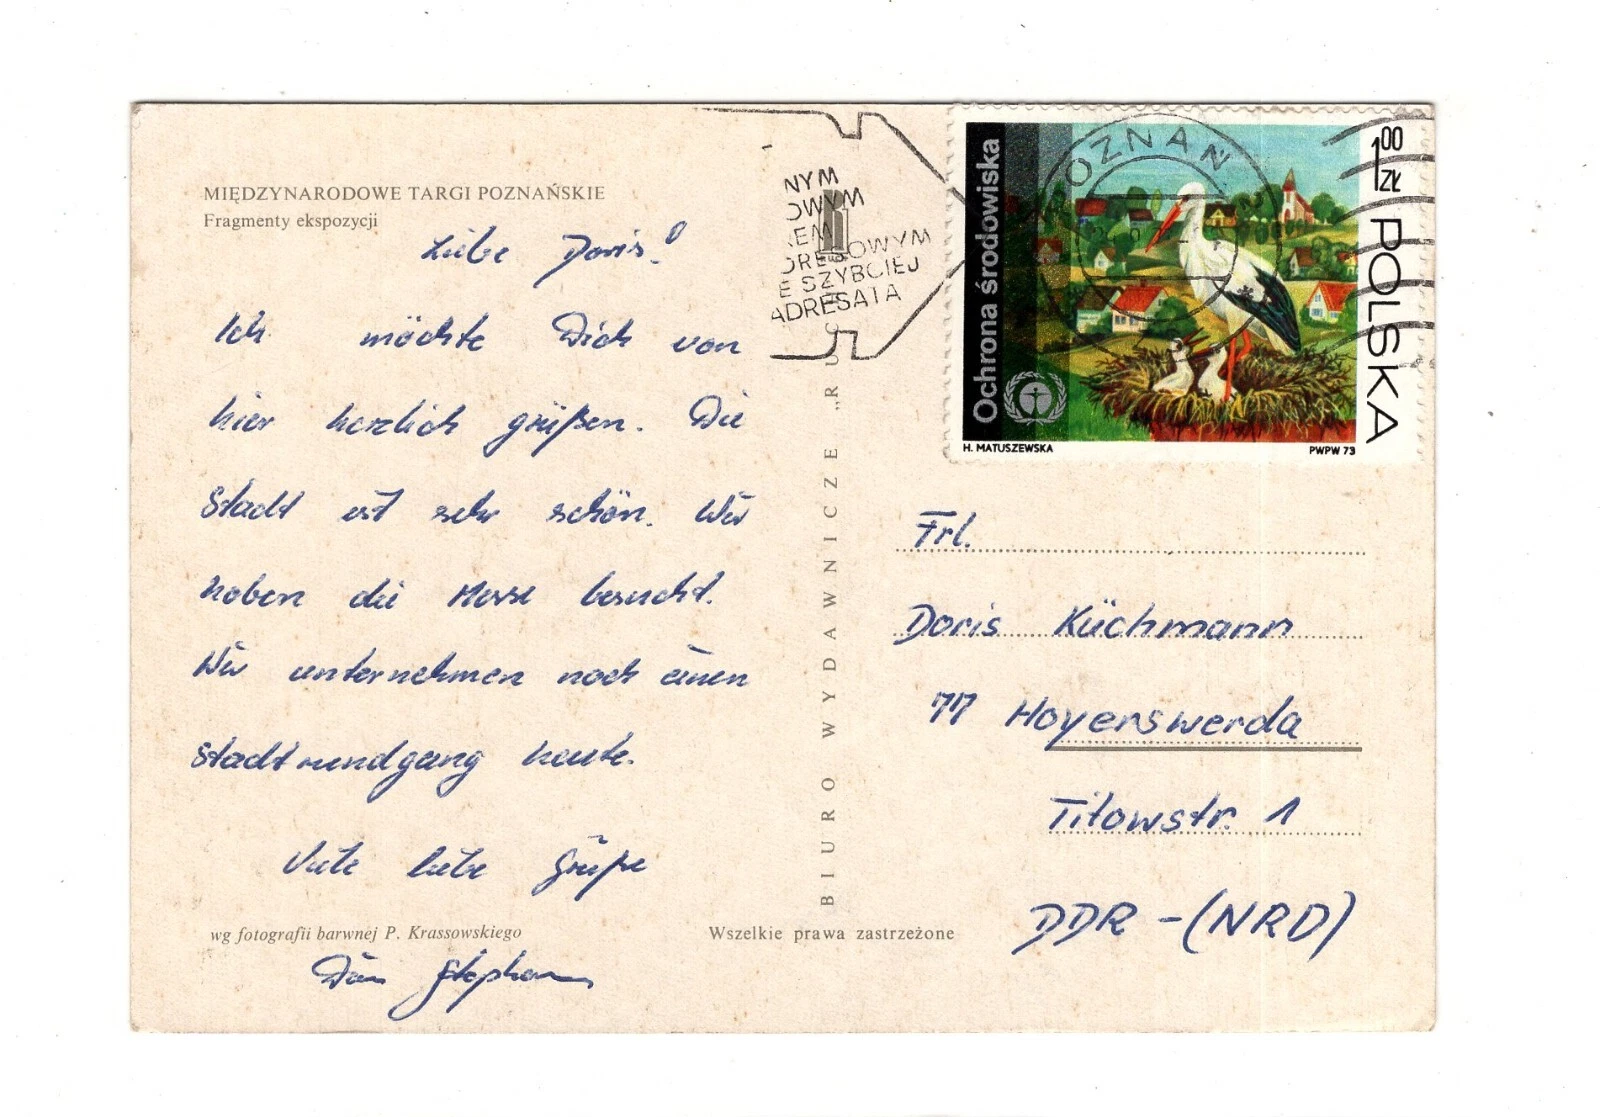 MIĘDZYNARODOWE TARGI POZNAŃSKIE
Fragmenty ekspozycji
Liebe Doris!
Ich möchte Dich von
hier herzlich grüßen. Die
Stadt ist sehr schön. Wir
haben die Messe besucht.
Wir unternehmen noch einen
Stadtrundgang heute.
Viele liebe Grüße
wg fotografii barwnej P. Krassowskiego
Dein Stephan
Wszelkie prawa zastrzeżone
BIURO WYDAWNICZE „RUCH
NYM
OWYM
REM
DRESOWYM
E SZYBCIEJ
ADRESATA
POZNAŃ 2
Ochrona środowiska
100 ZŁ
POLSKA
H. MATUSZEWSKA
PWPW 73
Frl.
Doris Küchmann
77 Hoyerswerda
Titowstr. 1
DDR - (NRD)